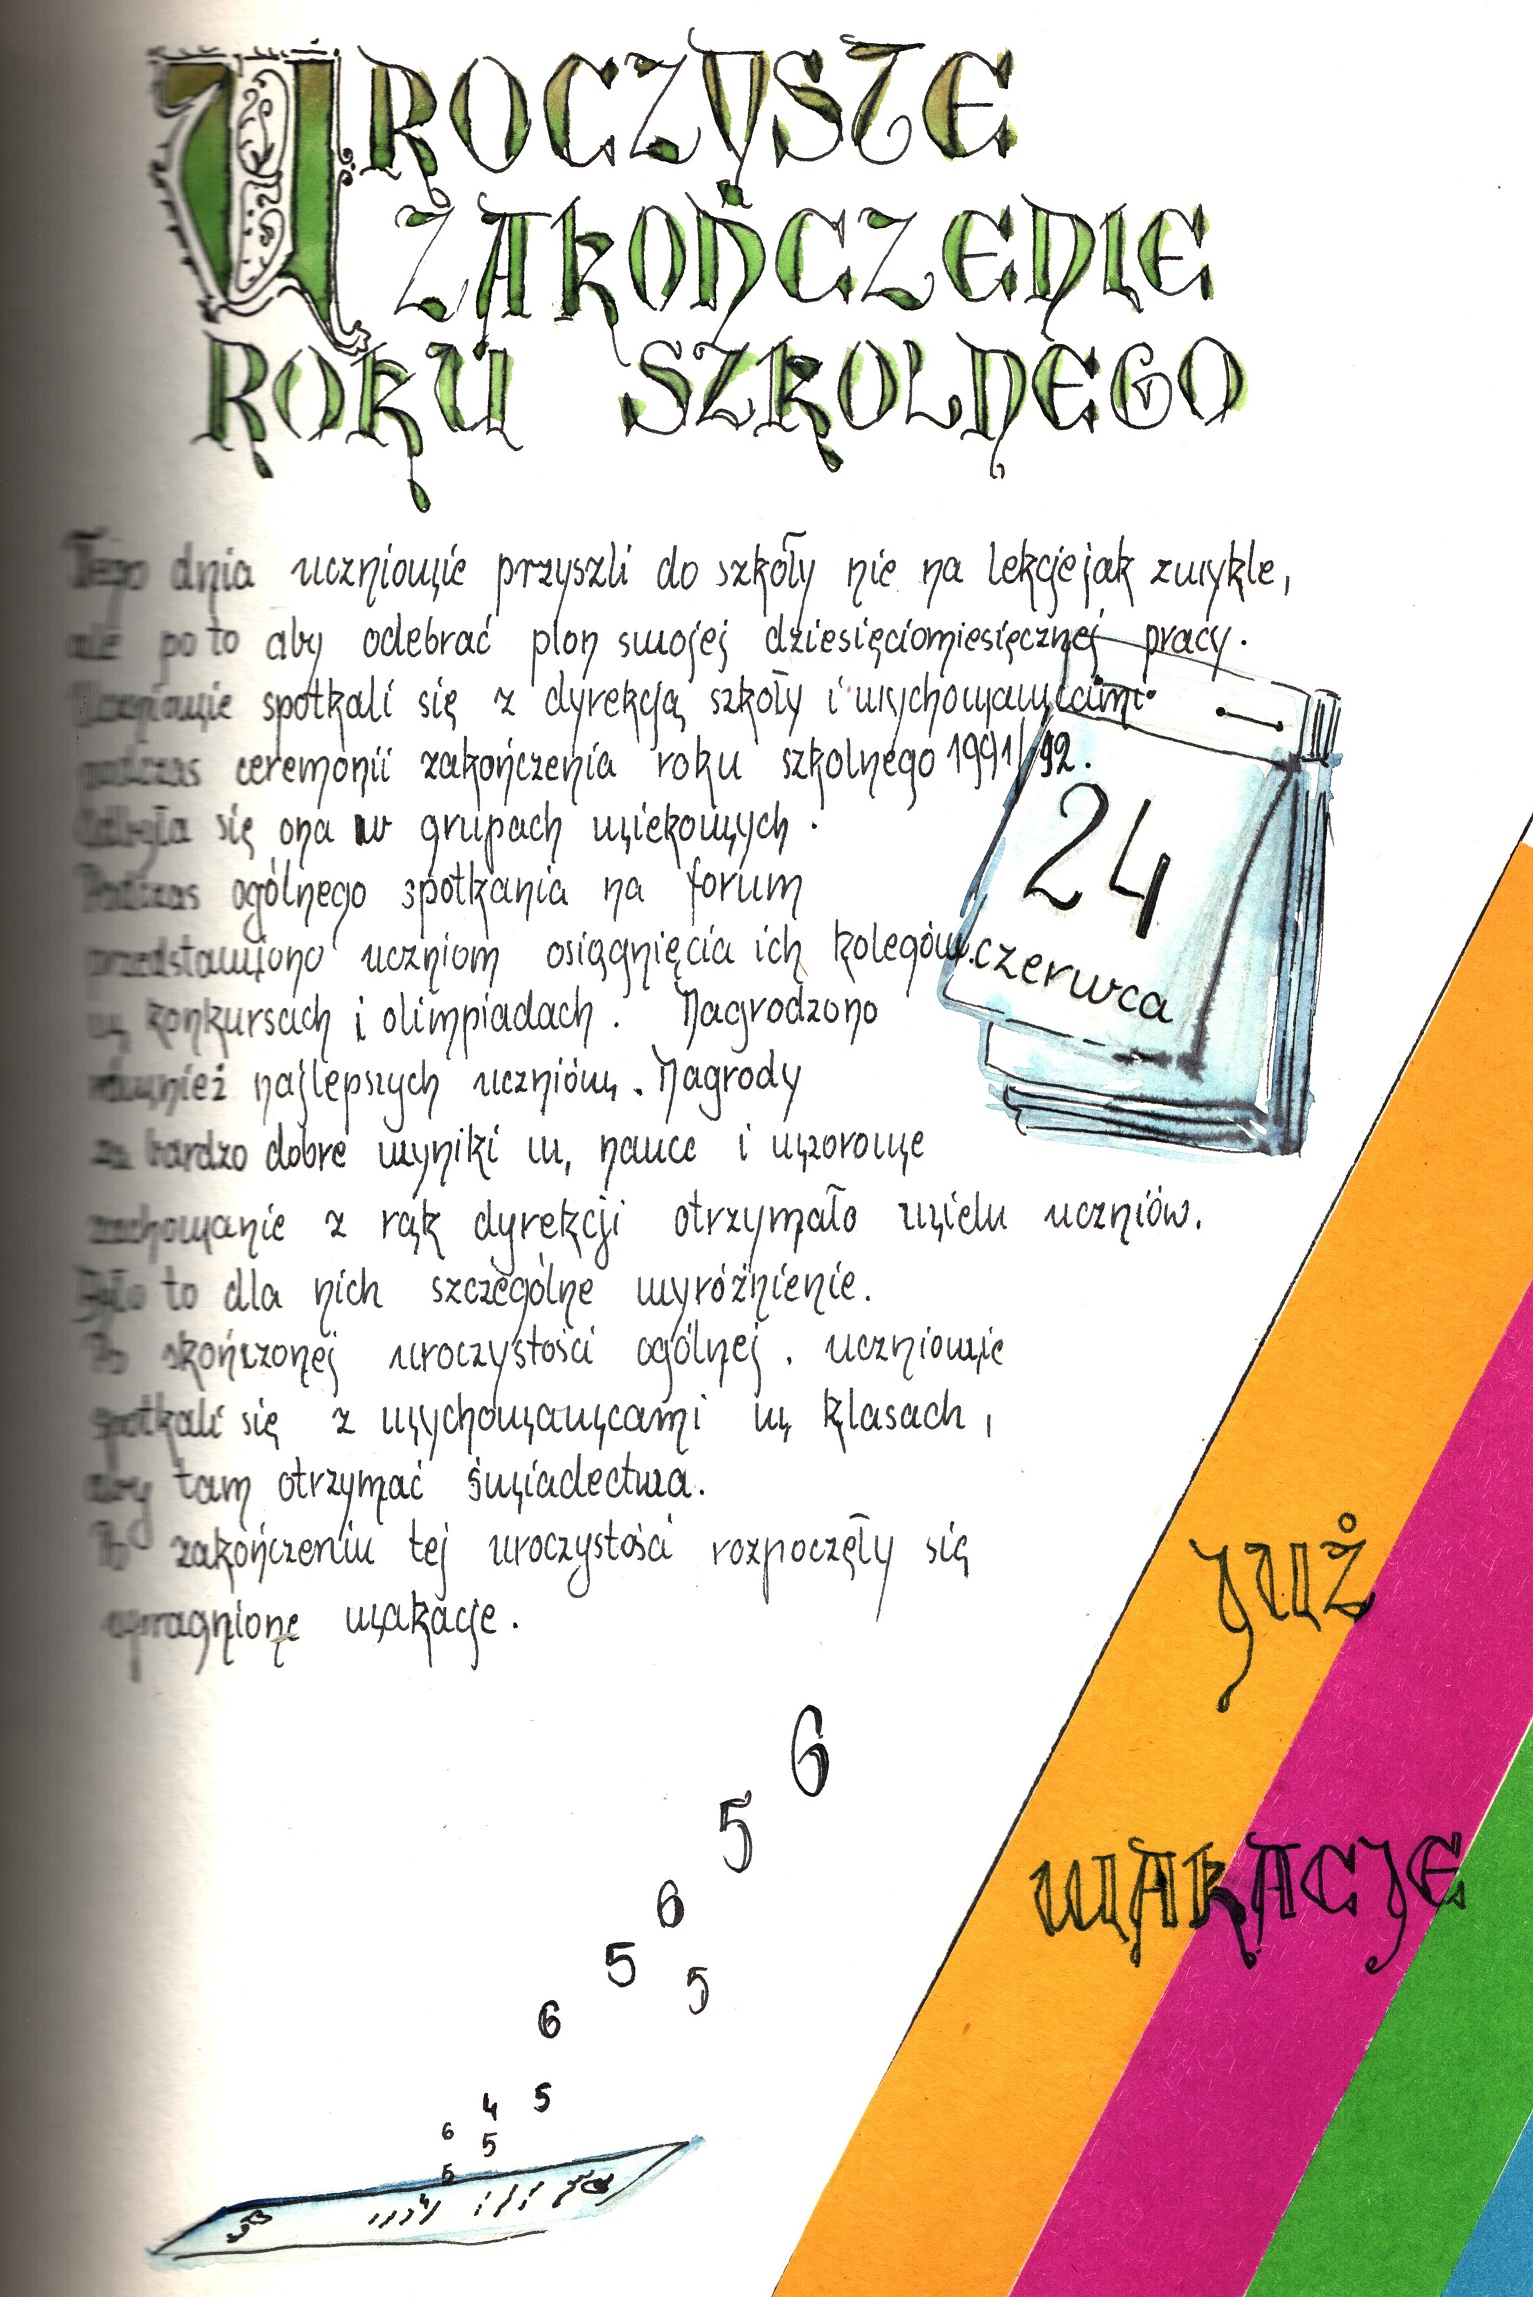 UROCZYSTE
ZAKOŃCZENIE
ROKU SZKOLNEGO
Tego dnia uczniowie przyszli do szkoły nie na lekcje jak zwykle,
ale po to aby odebrać plon swojej dziesięciomiesięcznej pracy.
Uczniowie spotkali się z dyrekcją szkoły i wychowawcami
podczas ceremonii zakończenia roku szkolnego 1991/92.
Odbyła się ona w grupach wiekowych.
Podczas ogólnego spotkania na forum
przedstawiono uczniom osiągnięcia ich kolegów
w konkursach i olimpiadach. Nagrodzono
również najlepszych uczniów. Nagrody
za bardzo dobre wyniki w nauce i wzorowe
zachowanie z rąk dyrekcji otrzymało wielu uczniów.
Było to dla nich szczególne wyróżnienie.
Po skończonej uroczystości ogólnej. uczniowie
spotkali się z wychowawcami w klasach,
aby tam otrzymać świadectwa.
Po zakończeniu tej uroczystości rozpoczęły się
upragnione wakacje.
24
czerwca
JUŻ
WAKACJE
6
5
6
5 5
6
4 5
6 5
5